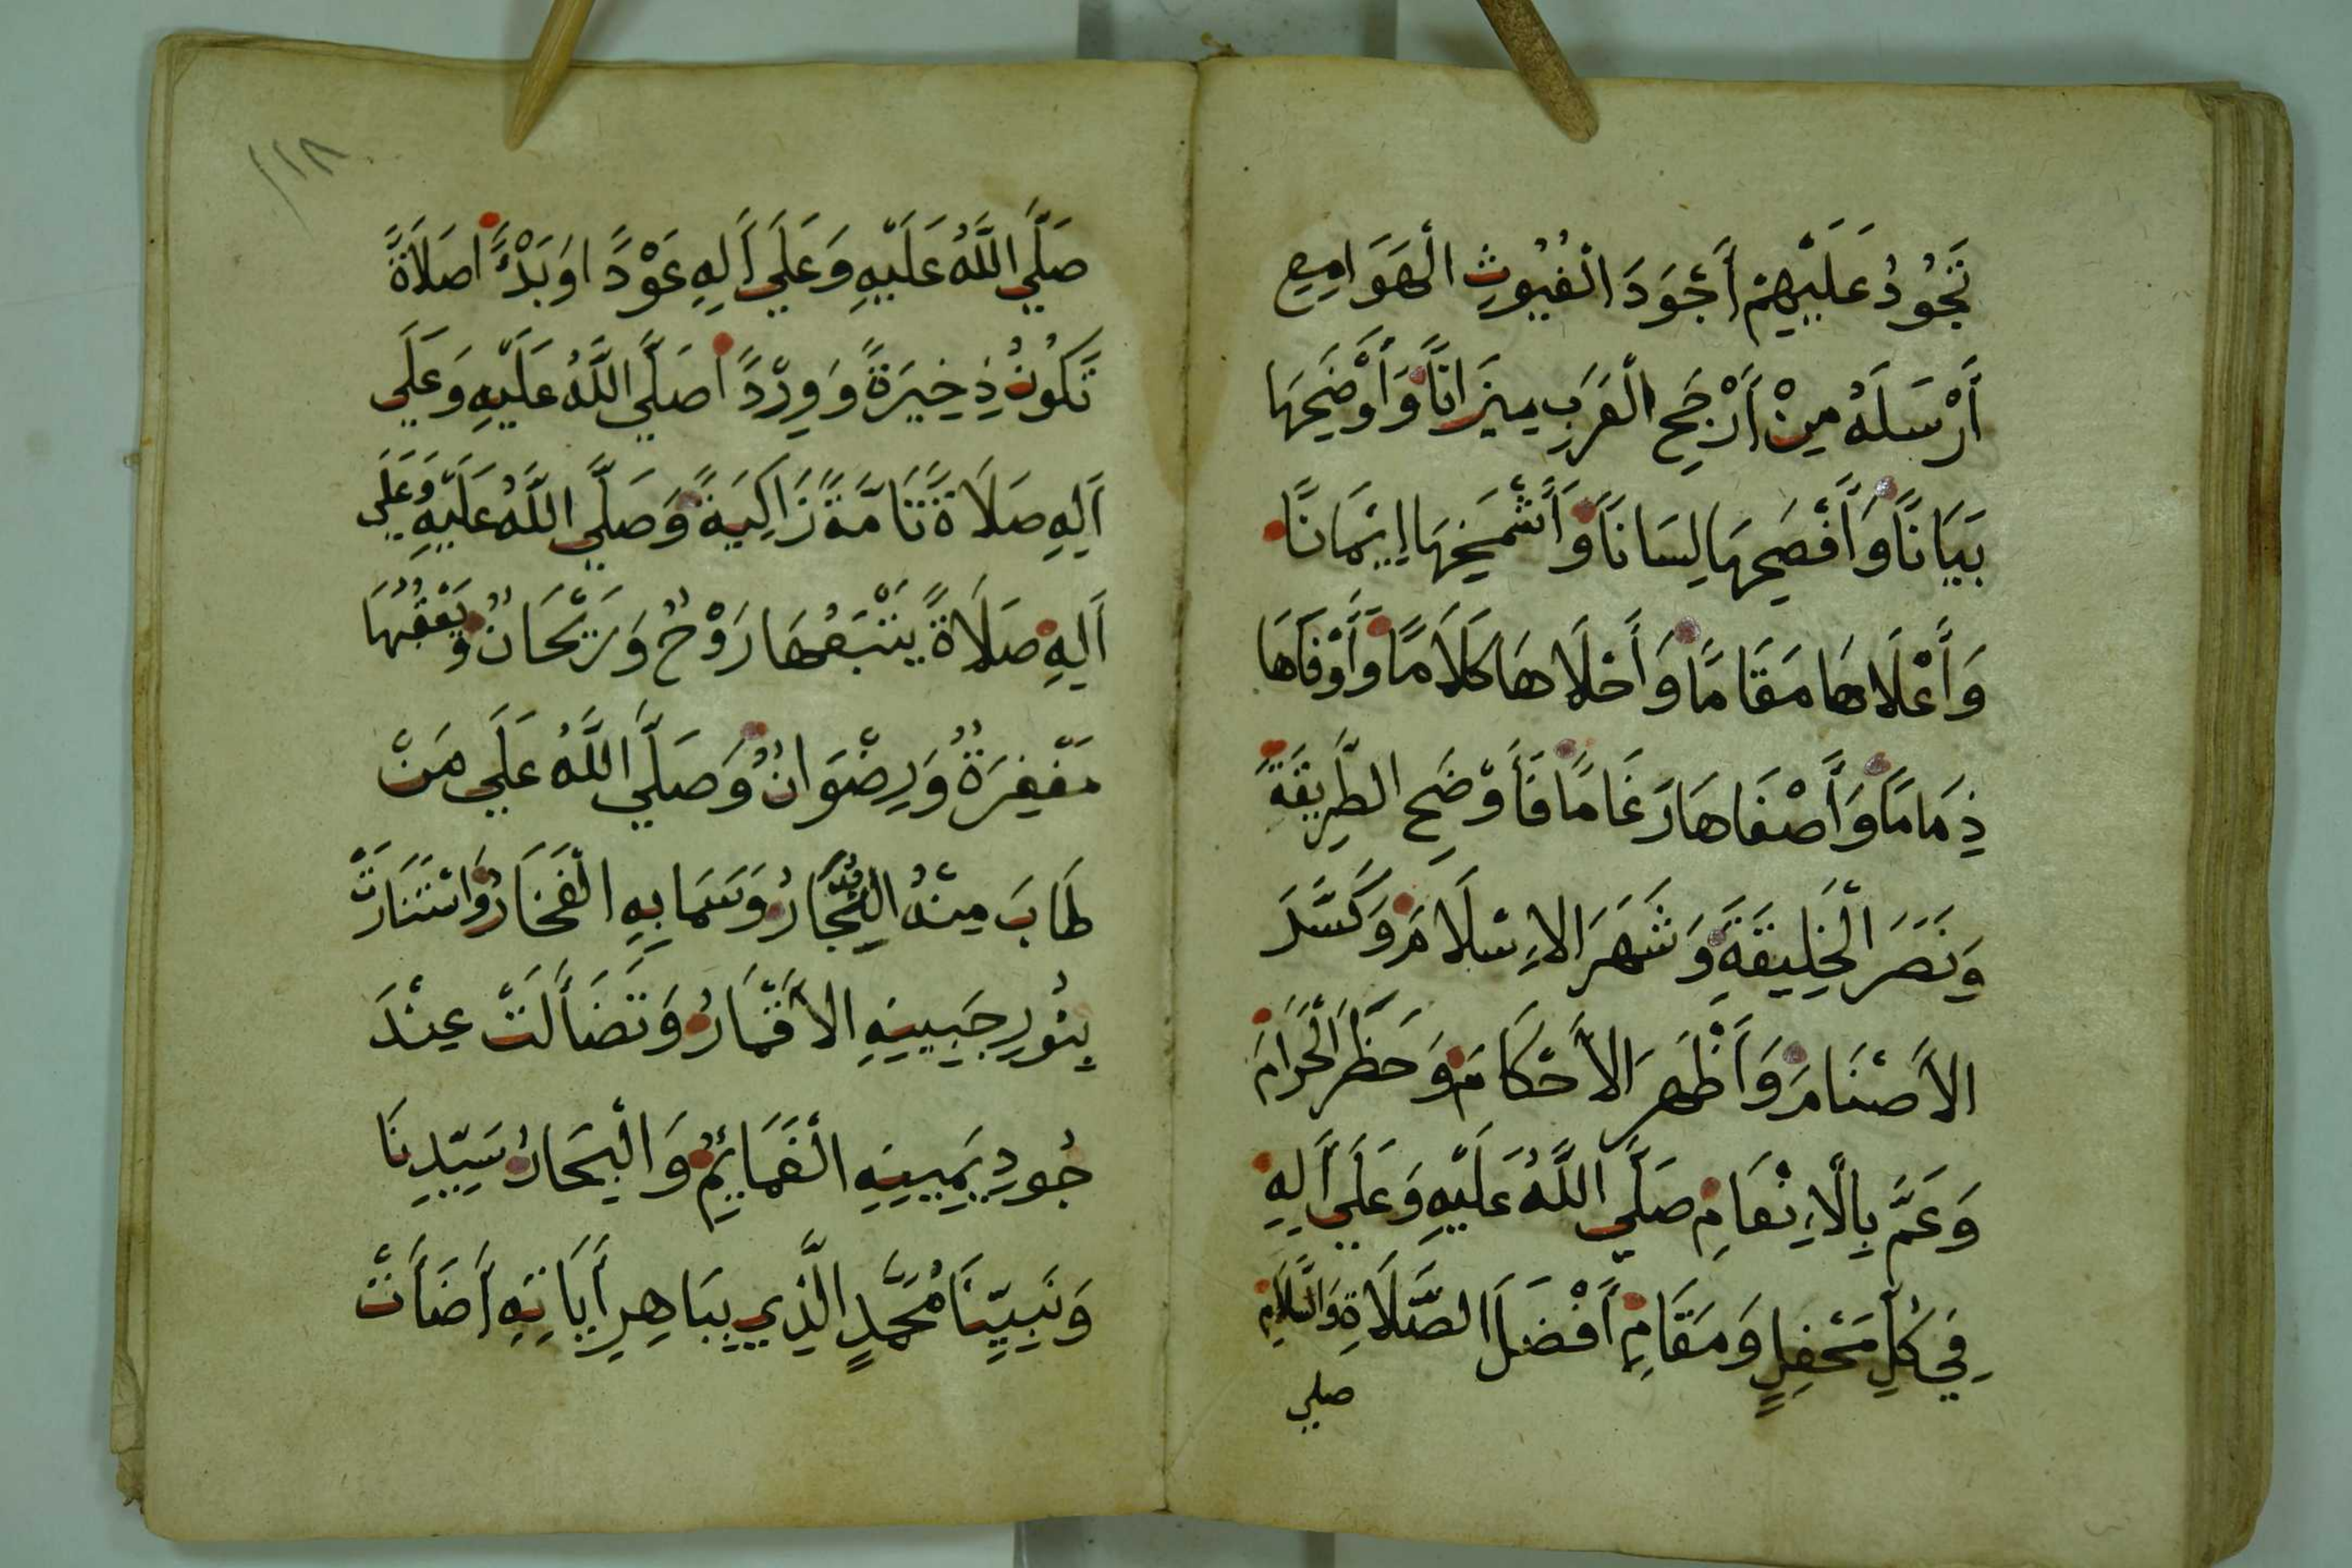 تَجُودُ عَلَيْهِمْ أَجْوَدَ الْغُيُوثِ الْهَوَامِعِ
أَرْسَلَهُ مِنْ أَرْجَحِ الْعَرَبِ مِيزَانًا وَأَوْضَحِهَا
بَيَانًا وَأَفْصَحِهَا لِسَانًا وَأَشْمَخِهَا إِيمَانًا
وَأَعْلَاهَا مَقَامًا وَأَحْلَاهَا كَلَامًا وَأَوْفَاهَا
ذِمَامًا وَأَصْفَاهَا رَغَامًا فَأَوْضَحَ الطَّرِيقَةَ
وَنَصَرَ الْخَلِيقَةَ وَشَهَرَ الْإِسْلَامَ وَكَسَّرَ
الْأَصْنَامَ وَأَظْهَرَ الْأَحْكَامَ وَحَظَرَ الْحَرَامَ
وَعَمَّ بِالْإِنْعَامِ صَلَّي اللَّهُ عَلَيْهِ وَعَلَي أَلِهِ
فِي كُلِّ مَحْفِلٍ وَمَقَامٍ أَفْضَلَ الصَّلَاةِ وَالسَّلَامِ
صلي
١١٨
صَلَّي اللَّهُ عَلَيْهِ وَعَلَي أَلِهِ عَوْدًا وَبَدْءًا صَلَاةً
تَكُونُ ذَخِيرَةً وَوِرْدًا صَلَّي اللَّهُ عَلَيْهِ وَعَلَي
اَلِهِ صَلَاةً تَامَّةً زَاكِيَةً وَصَلَّي اللَّهُ عَلَيْهِ وَعَلَي
اَلِهِ صَلَاةً يَتْبَعُهَا رَوْحٌ وَرَيْحَانٌ وَيَعْقُبُهَا
مَغْفِرَةٌ وَرِضْوَانٌ وَصَلَّي اللَّهُ عَلَي مَنْ
طَابَ مِنْهُ النِّجَارُ وَسَمَا بِهِ الْفَخَارُ وَاسْتَنَارَتْ
بِنُورِ جَبِينِهِ الْأَقْمَارُ وَتَضَأَلَتْ عِنْدَ
جُودِ يَمِينِهِ الْغَمَائِمُ وَالْبِحَارُ سَيِّدِنَا
وَنَبِيِّنَا مُحَمَّدٍ الَّذِي بِبَاهِرِ أَيَاتِهِ أَضَأَتْ